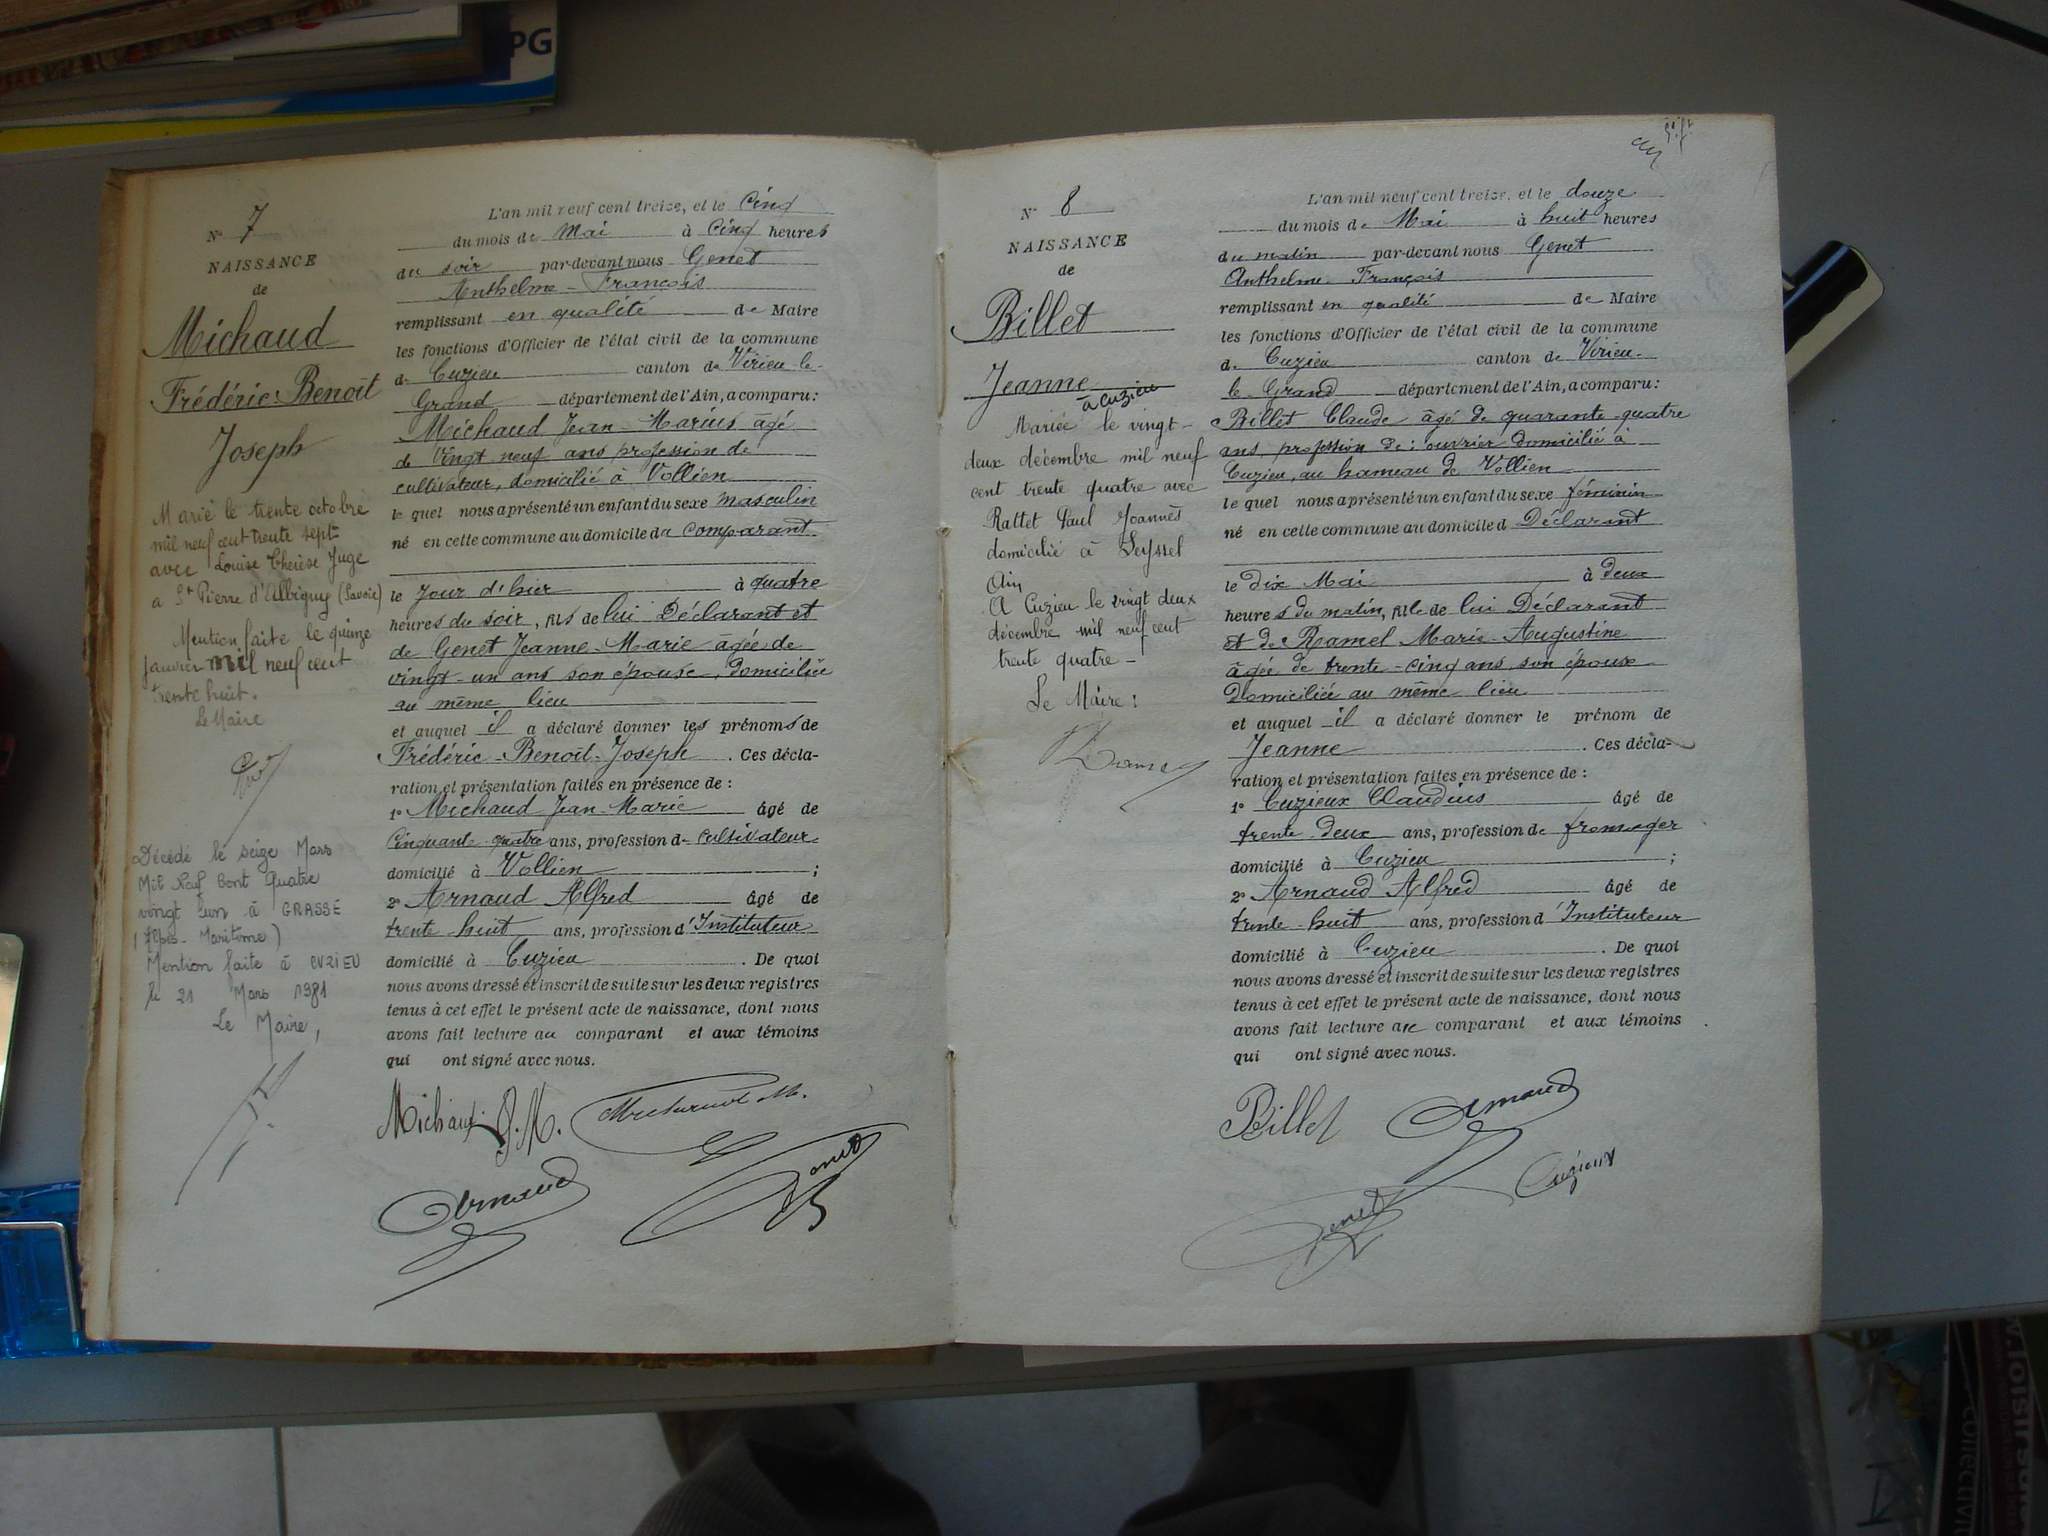 PG
N° 7
NAISSANCE
de
Michaud
Frédéric-Benoît
Joseph
Marié le trente octobre
mil neuf cent trente sept
avec Louise Thérèse Juge
a St Pierre d'Albigny (Savoie)
Mention faite le quinze
janvier mil neuf cent
trente huit.
Le Maire
Décédé le seize Mars
Mil Neuf Cent Quatre
vingt un à GRASSE
(Alpes-Maritime)
Mention faite à CUZIEU
le 21 Mars 1981
Le Maire,
L'an mil neuf cent treize, et le Cinq
du mois de Mai à Cinq heures
du soir par-devant nous Genet
Anthelme-François
remplissant en qualité de Maire
les fonctions d'Officier de l'état civil de la commune
de Cuzieu canton de Virieu-le-
Grand département de l'Ain, a comparu:
Michaud Jean-Marius âgé
de vingt neuf ans profession de
cultivateur, domicilié à Vollien
le quel nous a présenté un enfant du sexe masculin
né en cette commune au domicile du comparant
le Jour d'hier à quatre
heures du soir, fils de lui Déclarant et
de Genet Jeanne-Marie âgée de
vingt-un ans son épouse, domiciliée
au même lieu
et auquel il a déclaré donner les prénoms de
Frédéric-Benoît-Joseph. Ces décla-
ration et présentation faites en présence de:
1° Michaud Jean-Marie âgé de
Cinquante-quatre ans, profession de cultivateur
domicilié à Vollien;
2° Arnaud Alfred âgé de
trente-huit ans, profession d'Instituteur
domicilié à Cuzieu. De quoi
nous avons dressé et inscrit de suite sur les deux registres
tenus à cet effet le présent acte de naissance, dont nous
avons fait lecture au comparant et aux témoins
qui ont signé avec nous.
Michaud J. M.
Arnaud
Genet
N° 8
NAISSANCE
de
Billet
Jeanne
à Cuzieu
Mariée le vingt-
deux décembre mil neuf
cent trente quatre avec
Rattet Paul Joannès
domicilié à Seyssel
Ain
A Cuzieu le vingt deux
décembre mil neuf cent
trente quatre-
Le Maire:
L'an mil neuf cent treize, et le douze
du mois de Mai à huit heures
du matin par-devant nous Genet
Anthelme-François
remplissant en qualité de Maire
les fonctions d'Officier de l'état civil de la commune
de Cuzieu canton de Virieu-
le-Grand département de l'Ain, a comparu:
Billet Claude âgé de quarante-quatre
ans, profession de: ouvrier domicilié à
Cuzieu, au hameau de Vollien
le quel nous a présenté un enfant du sexe féminin
né en cette commune au domicile d Déclarant
le dix Mai à deux
heures du matin, fille de lui Déclarant
et de Ramel Marie-Augustine
âgée de trente-cinq ans son épouse
Domiciliée au même lieu
et auquel il a déclaré donner le prénom de
Jeanne. Ces décla-
ration et présentation faites en présence de:
1° Cuzieux Claudius âgé de
trente-deux ans, profession de fromager
domicilié à Cuzieu;
2° Arnaud Alfred âgé de
trente-huit ans, profession d'Instituteur
domicilié à Cuzieu. De quoi
nous avons dressé et inscrit de suite sur les deux registres
tenus à cet effet le présent acte de naissance, dont nous
avons fait lecture au comparant et aux témoins
qui ont signé avec nous.
Billet Arnaud
Cuzieux
Genet